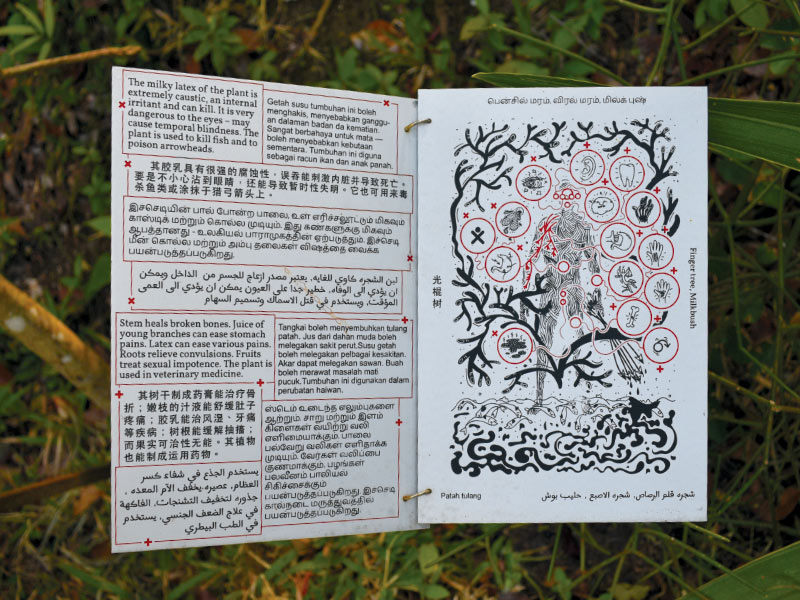 The milky latex of the plant is
extremely caustic, an internal
irritant and can kill. It is very
dangerous to the eyes – may
cause temporal blindness. The
plant is used to kill fish and to
poison arrowheads.
Getah susu tumbuhan ini boleh
menghakis, menyebabkan ganggu-
an dalaman badan da kematian.
Sangat berbahaya untuk mata —
boleh menyebabkan kebutaan
sementara. Tumbuhan ini diguna
sebagai racun ikan dan anak panah.
其胶乳具有很强的腐蚀性，误吞能刺激内脏并导致死亡。
要是不小心沾到眼睛，还能导致暂时性失明。它也可用来毒
杀鱼类或涂抹于猎弓箭头上。
இச்செடியின் பால் போன்ற பாலை, உள் எரிச்சலூட்டும் மிகவும்
காஸ்டிக் மற்றும் கொல்ல முடியும். இது கண்களுக்கு மிகவும்
ஆபத்தானது - உலகியல் பாராமுகத்தின் ஏற்படுத்தும். இச்செடி
மீன் கொல்ல மற்றும் அம்பு தலைகள் விஷத்தை வைக்க
பயன்படுத்தப்படுகிறது.
لبن الشجره كاوي للغايه. يعتبر مصدر ازعاج للجسم من الداخل ويمكن
ان يؤدي الى الوفاه. خطير جدا على العيون يمكن ان يؤدي الى العمى
المؤقت. ويستخدم في قتل الاسماك وتسميم السهام
Stem heals broken bones. Juice of
young branches can ease stomach
pains. Latex can ease various pains.
Roots relieve convulsions. Fruits
treat sexual impotence. The plant is
used in veterinary medicine.
Tangkai boleh menyembuhkan tulang
patah. Jus dari dahan muda boleh
melegakan sakit perut.Susu getah
boleh melegakan pelbagai kesakitan.
Akar dapat melegakan sawan. Buah
boleh merawat masalah mati
pucuk.Tumbuhan ini digunakan dalam
perubatan haiwan.
其树干制成药膏能治疗骨
折；嫩枝的汁液能舒缓肚子
疼痛；胶乳能治风湿、牙痛
等疾病；树根能缓解抽搐；
而果实可治性无能。其植物
也能制成运用药物。
ஸ்டெம் உடைந்த எலும்புகளை
ஆற்றும். சாறு மற்றும் இளம்
கிளைகள் வயிற்று வலி
எளிமையாக்கும். பாலை
பல்வேறு வலிகள் எளிதாக்க
முடியும். வேர்கள் வலிப்பை
குணமாக்கும். பழங்கள்
பலவீனம் பாலியல்
சிகிச்சைக்கும்
பயன்படுத்தப்படுகிறது. இச்செடி
கால்நடை மருத்துவத்தில்
பயன்படுத்தப்படுகிறது.
يستخدم الجذع في شفاء كسر
العظام. عصيره يخفف الآم المعده .
جذوره لتخفيف التشنجات. الفاكهة
في علاج الضعف الجنسي. يستخدم
في الطب البيطري
பென்சில் மரம், விரல் மரம், மில்க் புஷ்
光棍树
Finger tree, Milkbush
Patah tulang
شجره قلم الرصاص , شجره الاصبع , حليب بوش